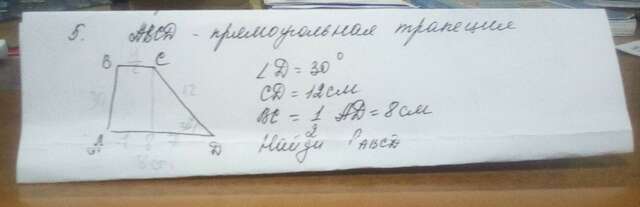 5. ABCD - прямоугольная трапеция
B C
∠D = 30°
CD = 12см
12
BC = 1/2 AD = 8см
A D
Найди P ABCD